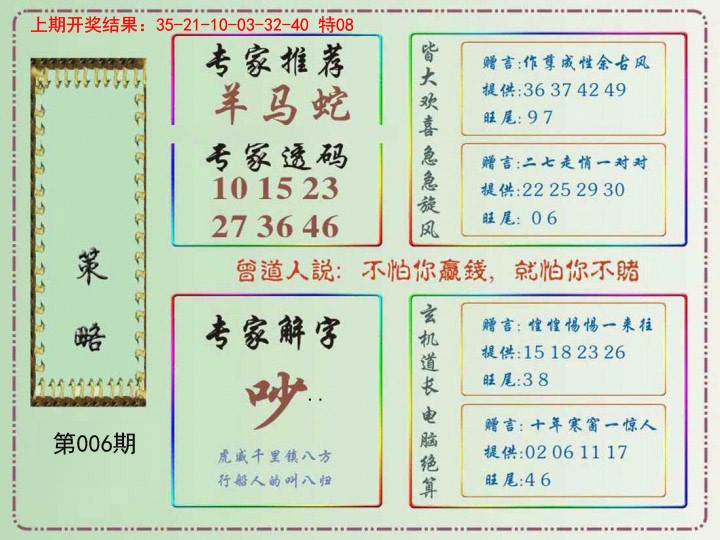 上期开奖结果：35-21-10-03-32-40 特08
策略
第006期
专家推荐
羊马蛇
专家透码
10 15 23
27 36 46
皆大欢喜
赠言:作尊成性余古风
提供:36 37 42 49
旺尾: 9 7
急急旋风
赠言:二七走悄一对对
提供:22 25 29 30
旺尾: 0 6
曾道人説: 不怕你贏錢, 就怕你不賭
专家解字
吵..
虎威千里镇八方
行船人的叫八归
玄机道长
赠言: 惶惶惕惕一来往
提供:15 18 23 26
旺尾:3 8
电脑绝算
赠言: 十年寒窗一惊人
提供:02 06 11 17
旺尾:4 6